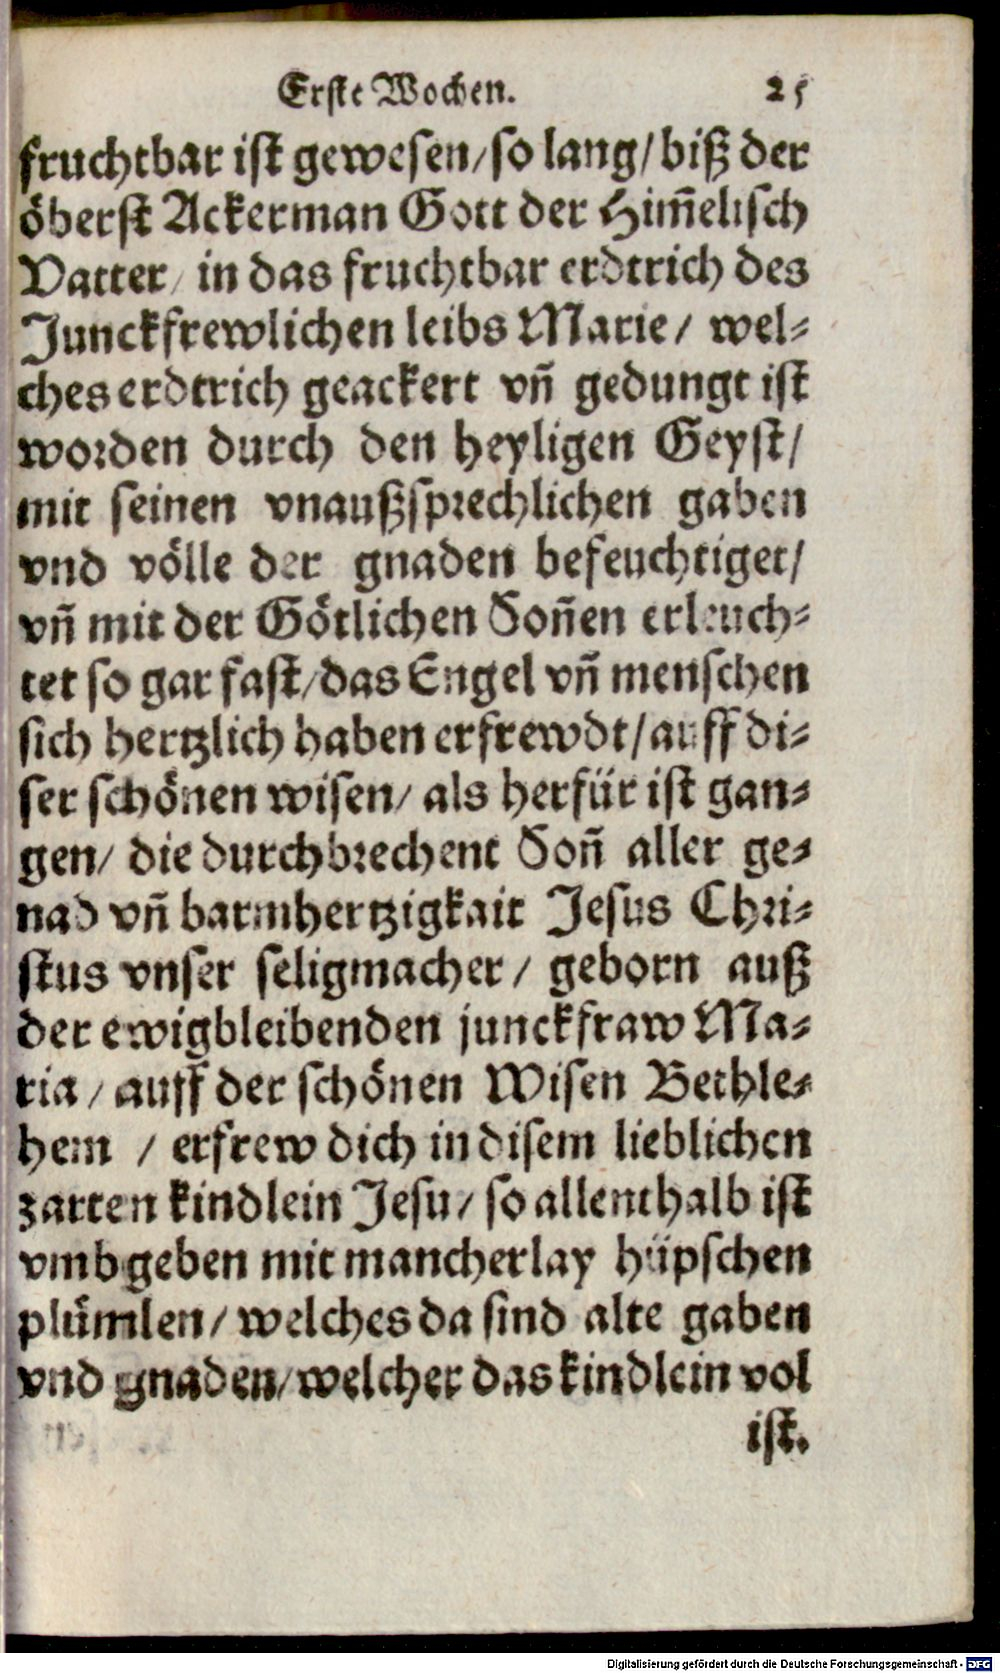 Erste Wochen. 25
fruchtbar ist gewesen/ so lang/ biß der
öberst Ackerman Gott der Him̃elisch
Vatter/ in das fruchtbar erdtrich des
Junckfrewlichen leibs Marie/ wel-
ches erdtrich geackert vñ gedungt ist
worden durch den heyligen Geyst/
mit seinen vnaußsprechlichen gaben
vnd völle der gnaden befeuchtiget/
vñ mit der Götlichen Soñen erleuch-
tet so gar fast/ das Engel vñ menschen
sich hertzlich haben erfrewdt/ auff di-
ser schönen wisen/ als herfür ist gan-
gen/ die durchbrechent Soñ aller ge-
nad vñ barmhertzigkait Jesus Chri-
stus vnser seligmacher/ geborn auß
der ewigbleibenden junckfraw Ma-
ria/ auff der schönen Wisen Bethle-
hem / erfrew dich in disem lieblichen
zarten kindlein Jesu/ so allenthalb ist
vmbgeben mit mancherlay hüpschen
plümlen/ welches da sind alte gaben
vnd gnaden/ welcher das kindlein vol
ist.
Digitalisierung gefördert durch die Deutsche Forschungsgemeinschaft - DFG